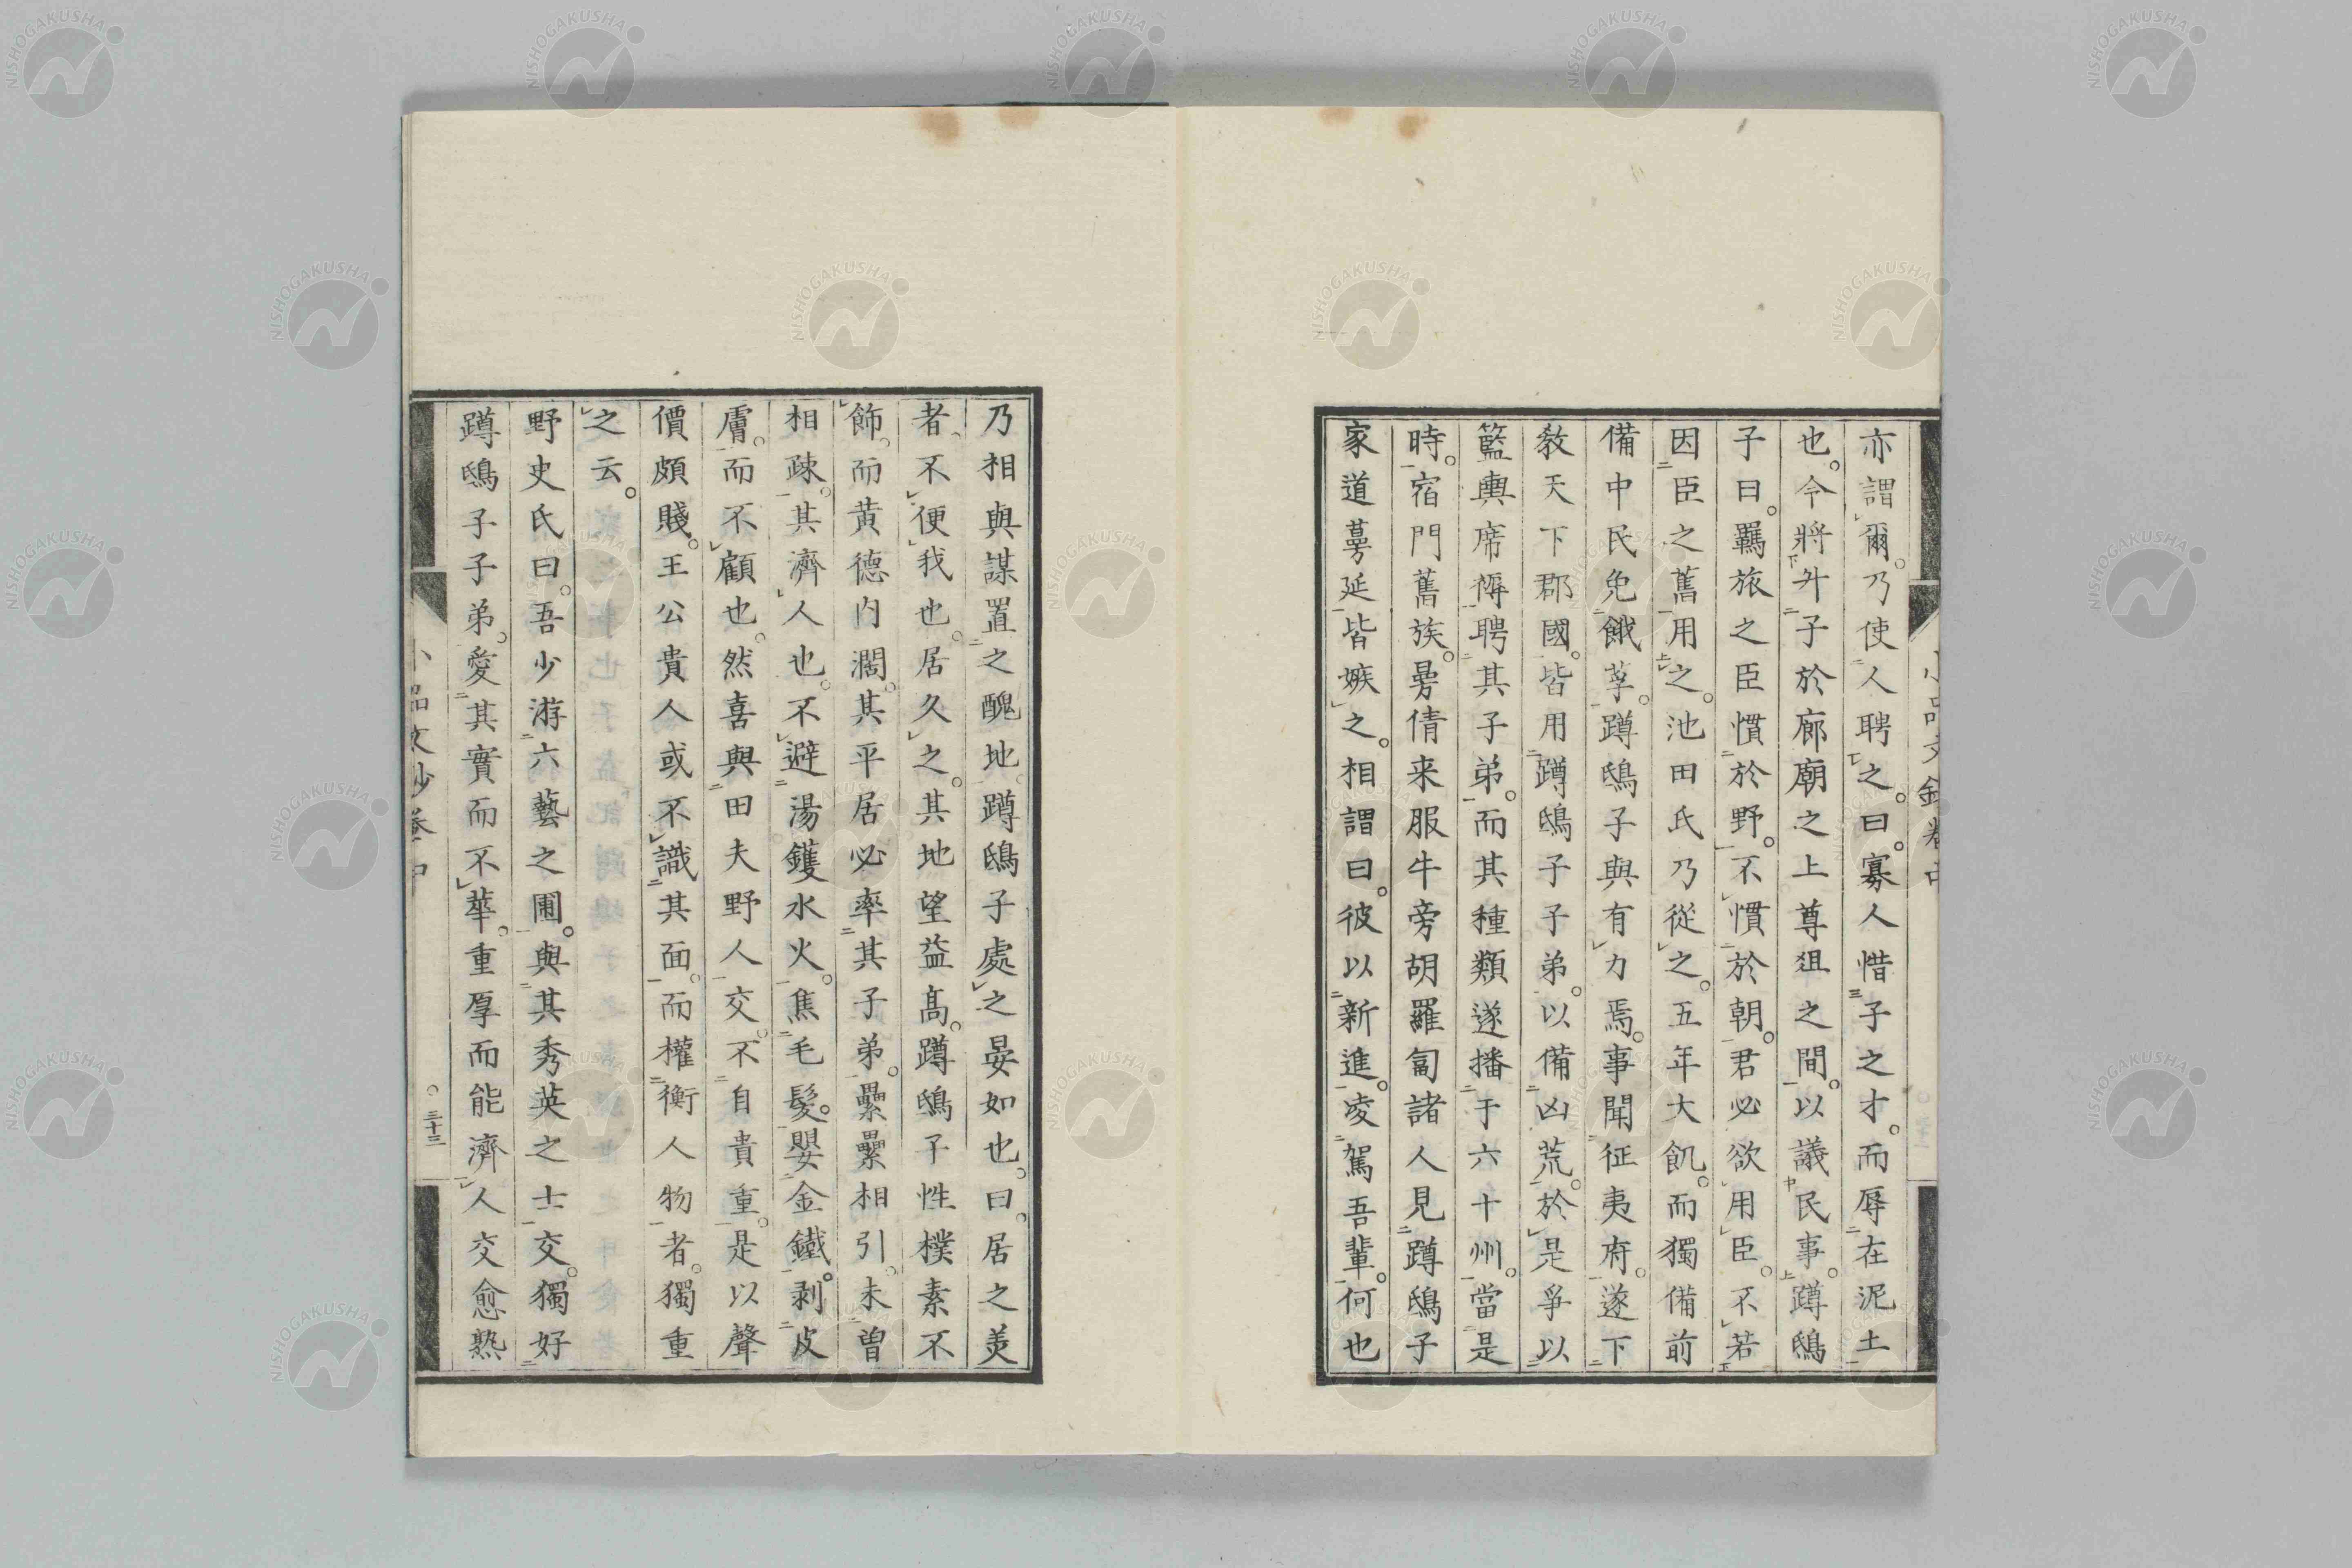 亦謂爾。乃使人聘之。曰。寡人惜子之才。而辱在泥土
也。今將升子於廊廟之上尊俎之間。以議民事。蹲鴟
子曰。羈旅之臣慣於野。不慣於朝。君必欲用臣。不若
因臣之舊用之。池田氏乃從之。五年大飢。而獨備前
備中民免餓莩。蹲鴟子與有力焉。事聞征夷府。遂下
敎天下郡國。皆用蹲鴟子子弟。以備凶荒。於是爭以
籃輿席褥聘其子弟。而其種類遂播于六十州。當是
時。宿門舊族。曼倩来服牛旁胡羅匐諸人見蹲鴟子
家道蔓延皆嫉之。相謂曰。彼以新進。凌駕吾輩。何也
乃相與謀置之醜地。蹲鴟子處之晏如也。曰。居之美
者。不便我也。居久之。其地望益髙。蹲鴟子性樸素不
飾。而黃德内濶。其平居必率其子弟。纍纍相引。未曽
相疎。其濟人也。不避湯鑊水火。焦毛髮。嬰金鐵。剥皮
膚。而不顧也。然喜與田夫野人交。不自貴重。是以聲
價頗賤。王公貴人或不識其面。而權衡人物者。獨重
之云。
野史氏曰。吾少游六藝之圃。與其秀英之士交。獨好
蹲鴟子子弟。愛其實而不華。重厚而能濟人交愈熟
小品文鈔卷中
三十三
NISHOGAKUSHA